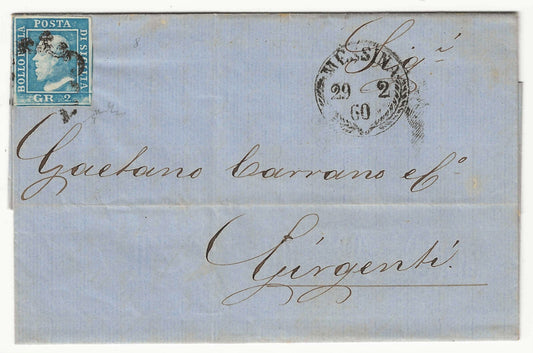 BOLLO DELLA
POSTA
DI SICILIA
GR. 2
MESSINA
29 2
60
Sig.ri
Gaetano Carrano e C.o
Girgenti.